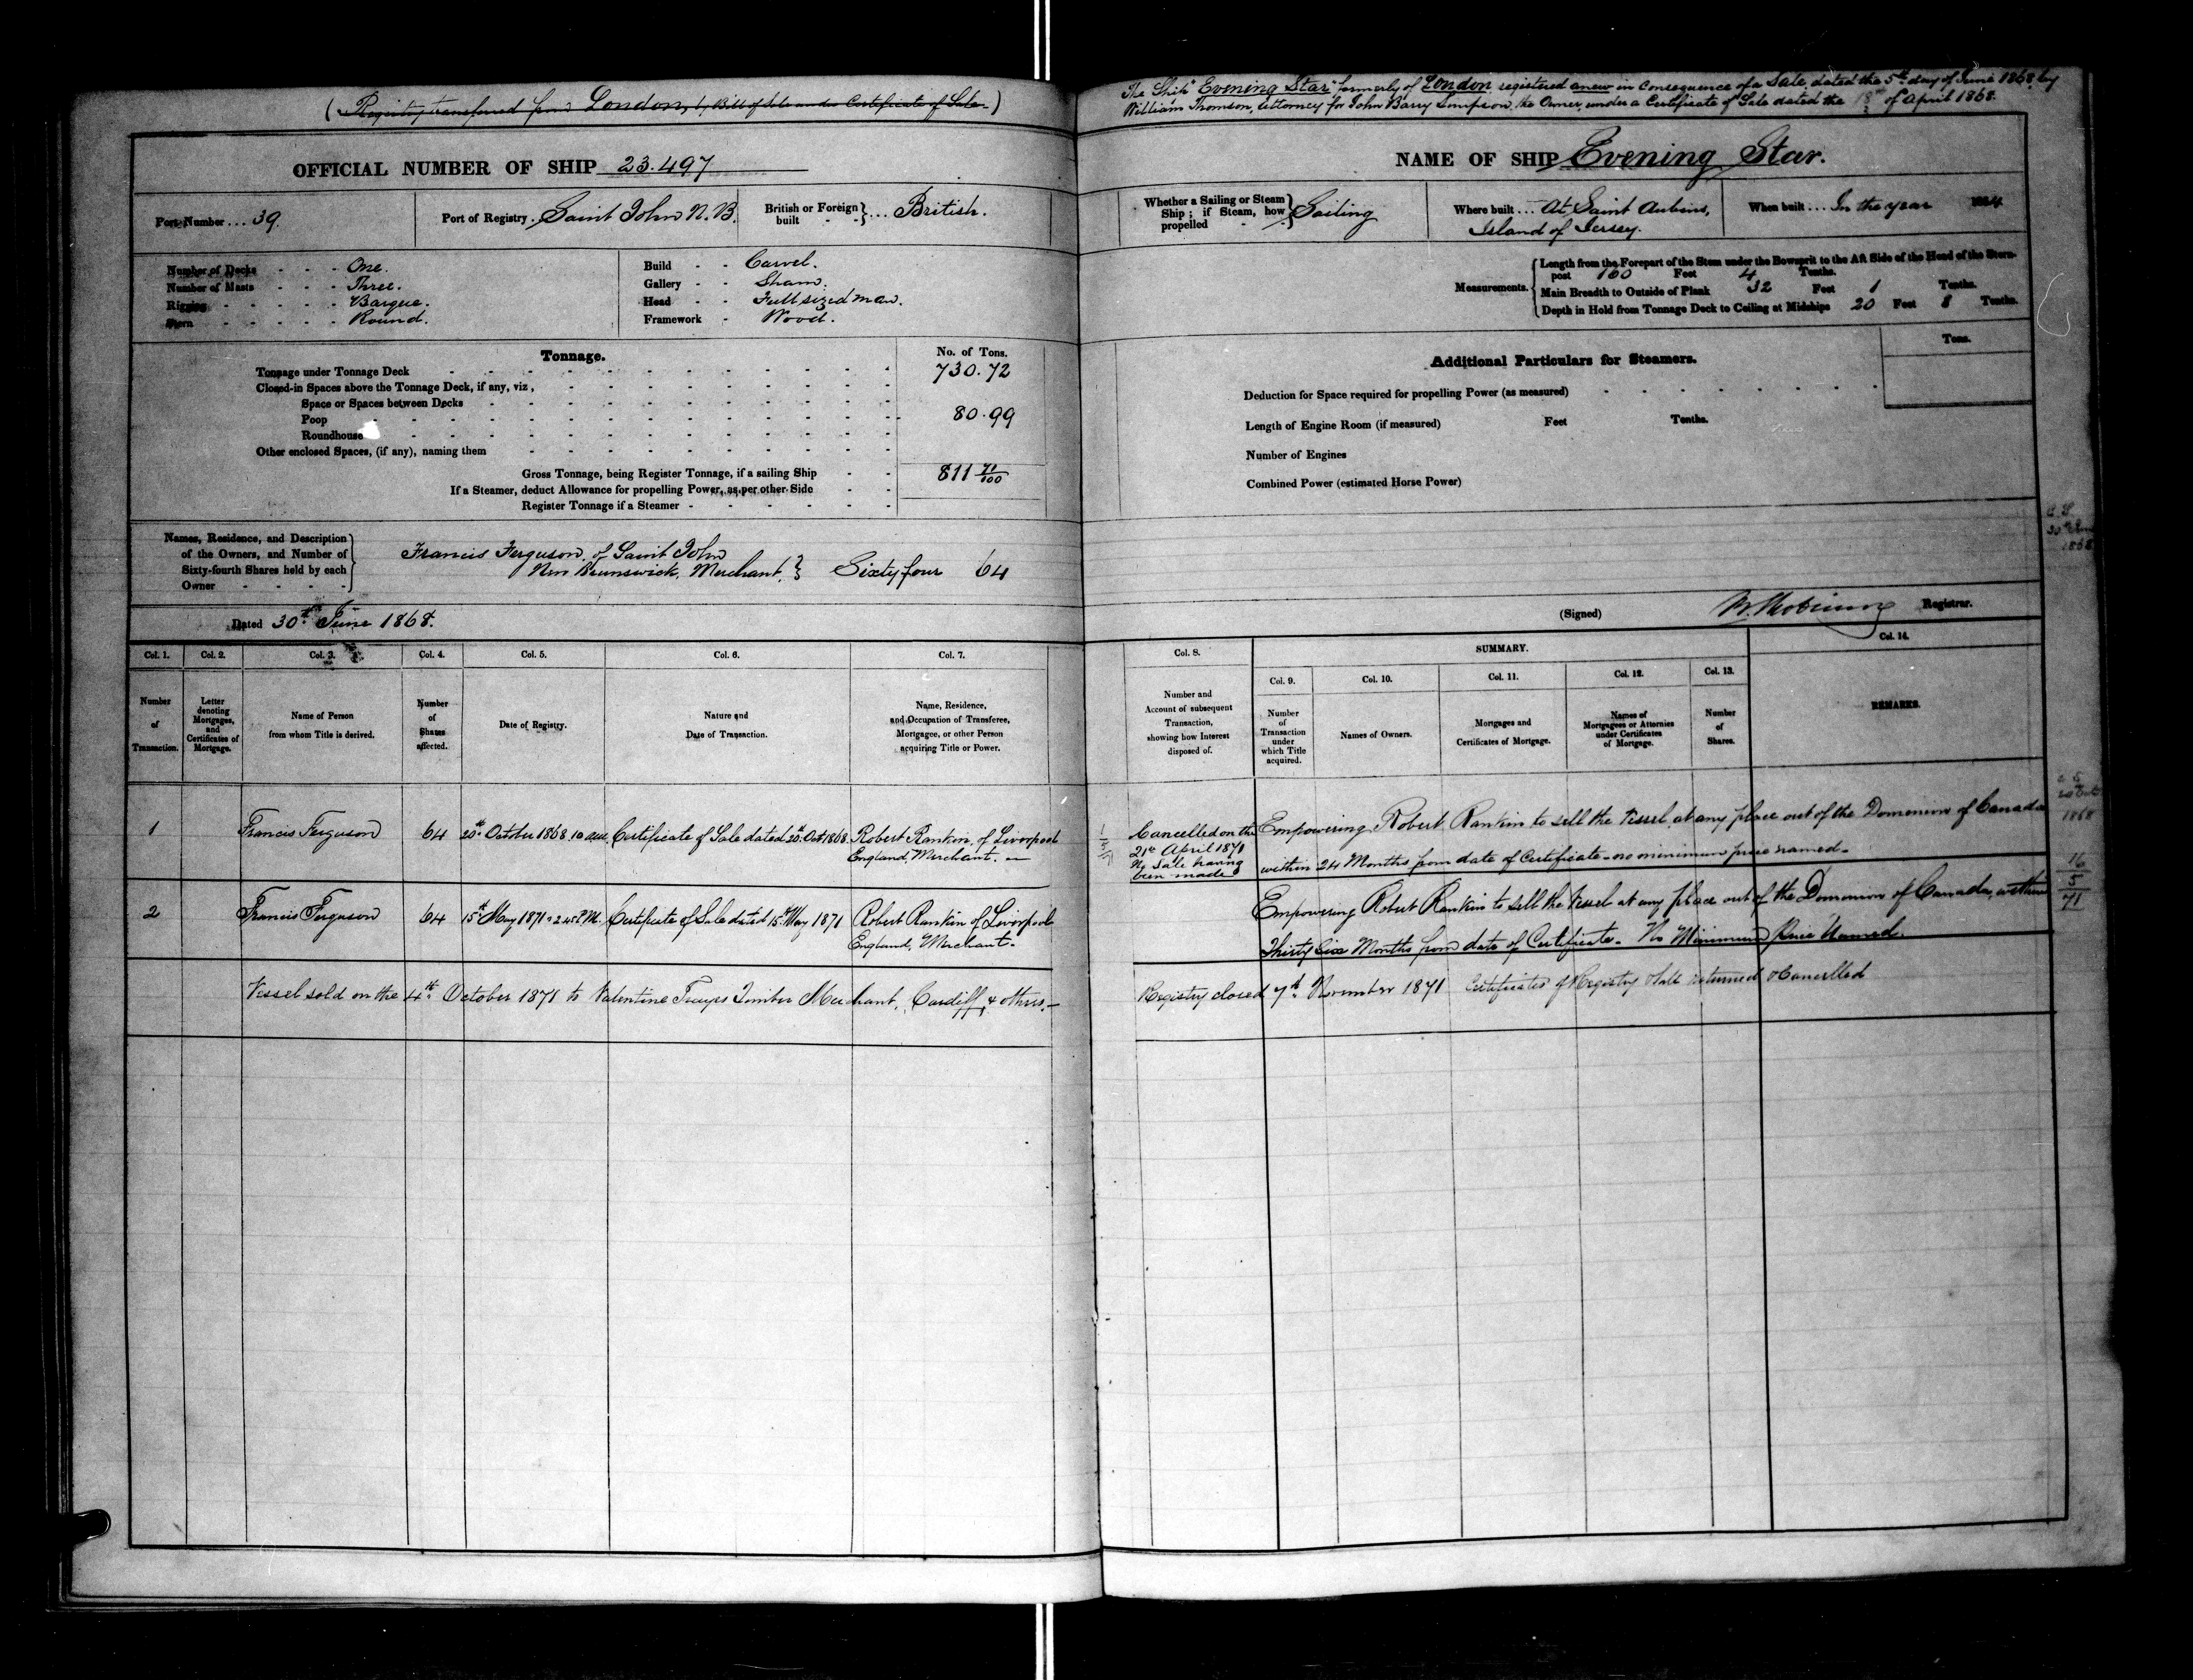 ( Registry transferred from London, by Bill of Sale under Certificate of Sale )
OFFICIAL NUMBER OF SHIP 23.497
Port Number ... 39.
Port of Registry. Saint John N.B.
British or Foreign built } ... British.
Number of Decks - - - One.
Number of Masts - - - Three.
Rigging - - - - - Barque.
Stern - - - - - Round.
Build - - Carvel.
Gallery - - Sham.
Head - - Full sized man.
Framework - Wood.
Tonnage.
No. of Tons.
Tonnage under Tonnage Deck 730.72
Closed-in Spaces above the Tonnage Deck, if any, viz,
Space or Spaces between Decks
Poop 80.99
Roundhouse
Other enclosed Spaces, (if any), naming them
Gross Tonnage, being Register Tonnage, if a sailing Ship 811 71/100
If a Steamer, deduct Allowance for propelling Power, as per other Side
Register Tonnage if a Steamer
Names, Residence, and Description
of the Owners, and Number of
Sixty-fourth Shares held by each
Owner - - -
Francis Ferguson, of Saint John
New Brunswick, Merchant, } Sixty four 64
Dated 30th June 1868.
Col. 1. Col. 2. Col. 3. Col. 4. Col. 5. Col. 6. Col. 7.
Number of Transaction.
Letter denoting Mortgages, and Certificates of Mortgage.
Name of Person from whom Title is derived.
Number of Shares affected.
Date of Registry.
Nature and Date of Transaction.
Name, Residence, and Occupation of Transferee, Mortgagee, or other Person acquiring Title or Power.
1 Francis Ferguson 64 20th October 1868 10 a.m. Certificate of Sale dated 20th Oct 1868. Robert Rankin, of Liverpool
England, Merchant.
2 Francis Ferguson 64 15th May 1871 2.45 P.M. Certificate of Sale dated 15th May 1871 Robert Rankin of Liverpool
England, Merchant.
Vessel sold on the 4th October 1871 to Valentine Timber Merchant, Cardiff, & others.
The Ship "Evening Star" formerly of London registered anew in consequence of a Sale, dated the 5th day of June 1868 by
William Thomson, Attorney for John Barry Simpson, the Owner, under a Certificate of Sale dated the 18th of April 1868.
NAME OF SHIP Evening Star.
Whether a Sailing or Steam Ship; if Steam, how propelled } Sailing
Where built ... At Saint Aubins,
Island of Jersey.
When built ... In the year
Measurements.
Length from the Forepart of the Stem under the Bowsprit to the Aft Side of the Head of the Stern-
post 160 Feet 4 Tenths.
Main Breadth to Outside of Plank 32 Feet 1 Tenths.
Depth in Hold from Tonnage Deck to Ceiling at Midships 20 Feet 8 Tenths.
Additional Particulars for Steamers.
Tons.
Deduction for Space required for propelling Power (as measured)
Length of Engine Room (if measured) Feet Tenths.
Number of Engines
Combined Power (estimated Horse Power)
(Signed) Registrar.
Col. 8.
SUMMARY.
Col. 9. Col. 10. Col. 11. Col. 12. Col. 13. Col. 14.
Number and Account of subsequent Transaction, showing how Interest disposed of.
Number of Transaction under which Title acquired.
Names of Owners.
Mortgages and Certificates of Mortgage.
Names of Mortgagees or Attornies under Certificates of Mortgage.
Number of Shares.
REMARKS.
Cancelled on the
21st April 1871
No Sale having
been made
Empowering Robert Rankin to sell the Vessel at any place out of the Dominion of Canada
within 24 Months from date of Certificate - no minimum price named -
Empowering Robert Rankin to sell the Vessel at any place out of the Dominion of Canada, within
Thirty Six Months from date of Certificate. No Minimum Price Named.
Registry closed 7th November 1871 Certificates of Registry & Sale returned & Cancelled
16
5
71